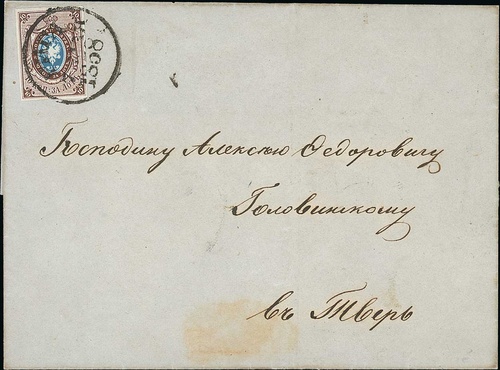 1858
Господину Алексѣю Ѳедоровичу
Головинскому
въ Тверь